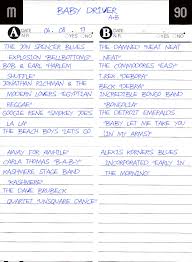 BABY DRIVER
A+B
m
90
A
DATE
04 . 08 . 17
YES NO
B
DATE
YES NO
THE JON SPENCER BLUES
EXPLOSION "BELLBOTTOMS"
BOB & EARL "HARLEM
SHUFFLE"
JONATHAN RICHMAN & THE
MODERN LOVERS "EGYPTIAN
REGGAE"
GOOGIE RENE "SMOKEY JOES
LA LA"
THE BEACH BOYS "LETS GO
AWAY FOR AWHILE"
CARLA THOMAS "B-A-B-Y"
KASHMERE STAGE BAND
"KASHMERE"
THE DAVE BRUBECK
QUARTET "UNSQUARE DANCE"
THE DAMNED "NEAT NEAT
NEAT"
THE COMMODORES "EASY"
T.REX "DEBORA"
BECK "DEBRA"
INCREDIBLE BONGO BAND
"BONGOLIA"
THE DETROIT EMERALDS
"BABY LET ME TAKE YOU
IN MY ARMS)"
ALEXIS KORNERS BLUES
INCORPORATED "EARLY IN
THE MORNING"